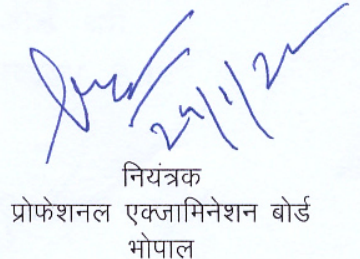 नियंत्रक
प्रोफेशनल एक्जामिनेशन बोर्ड
भोपाल